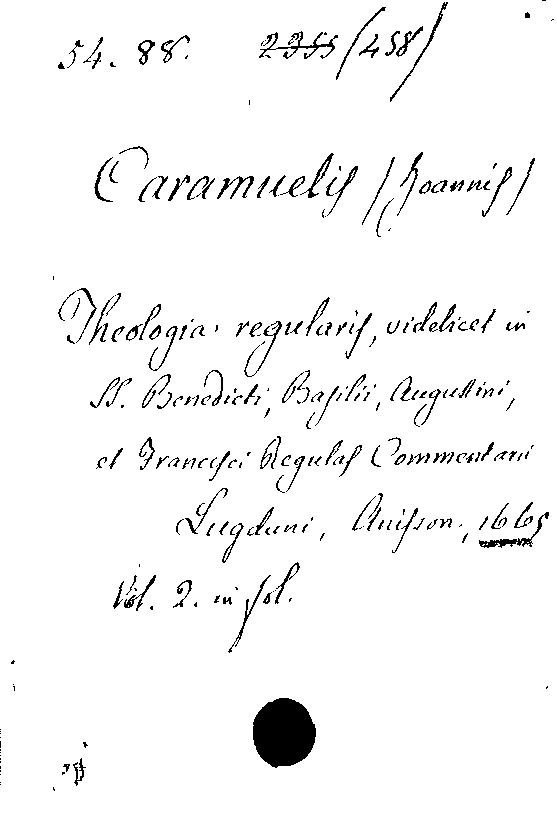 54. 88. 2355 (458)
Caramuelis (Joannis)
Theologia regularis, videlicet in
SS. Benedicti, Basilii, Augustini,
et Francisci Regulas Commentarii
Lugduni, Anisson, 1665
Vol. 2. in fol.